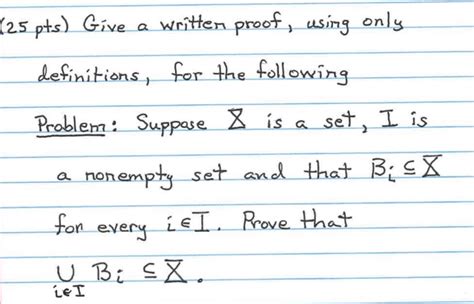 (25 pts) Give a written proof, using only
definitions, for the following
Problem: Suppose X is a set, I is
a nonempty set and that Bᵢ ⊆ X
for every i∈I. Prove that
∪ Bᵢ ⊆ X.
i∈I